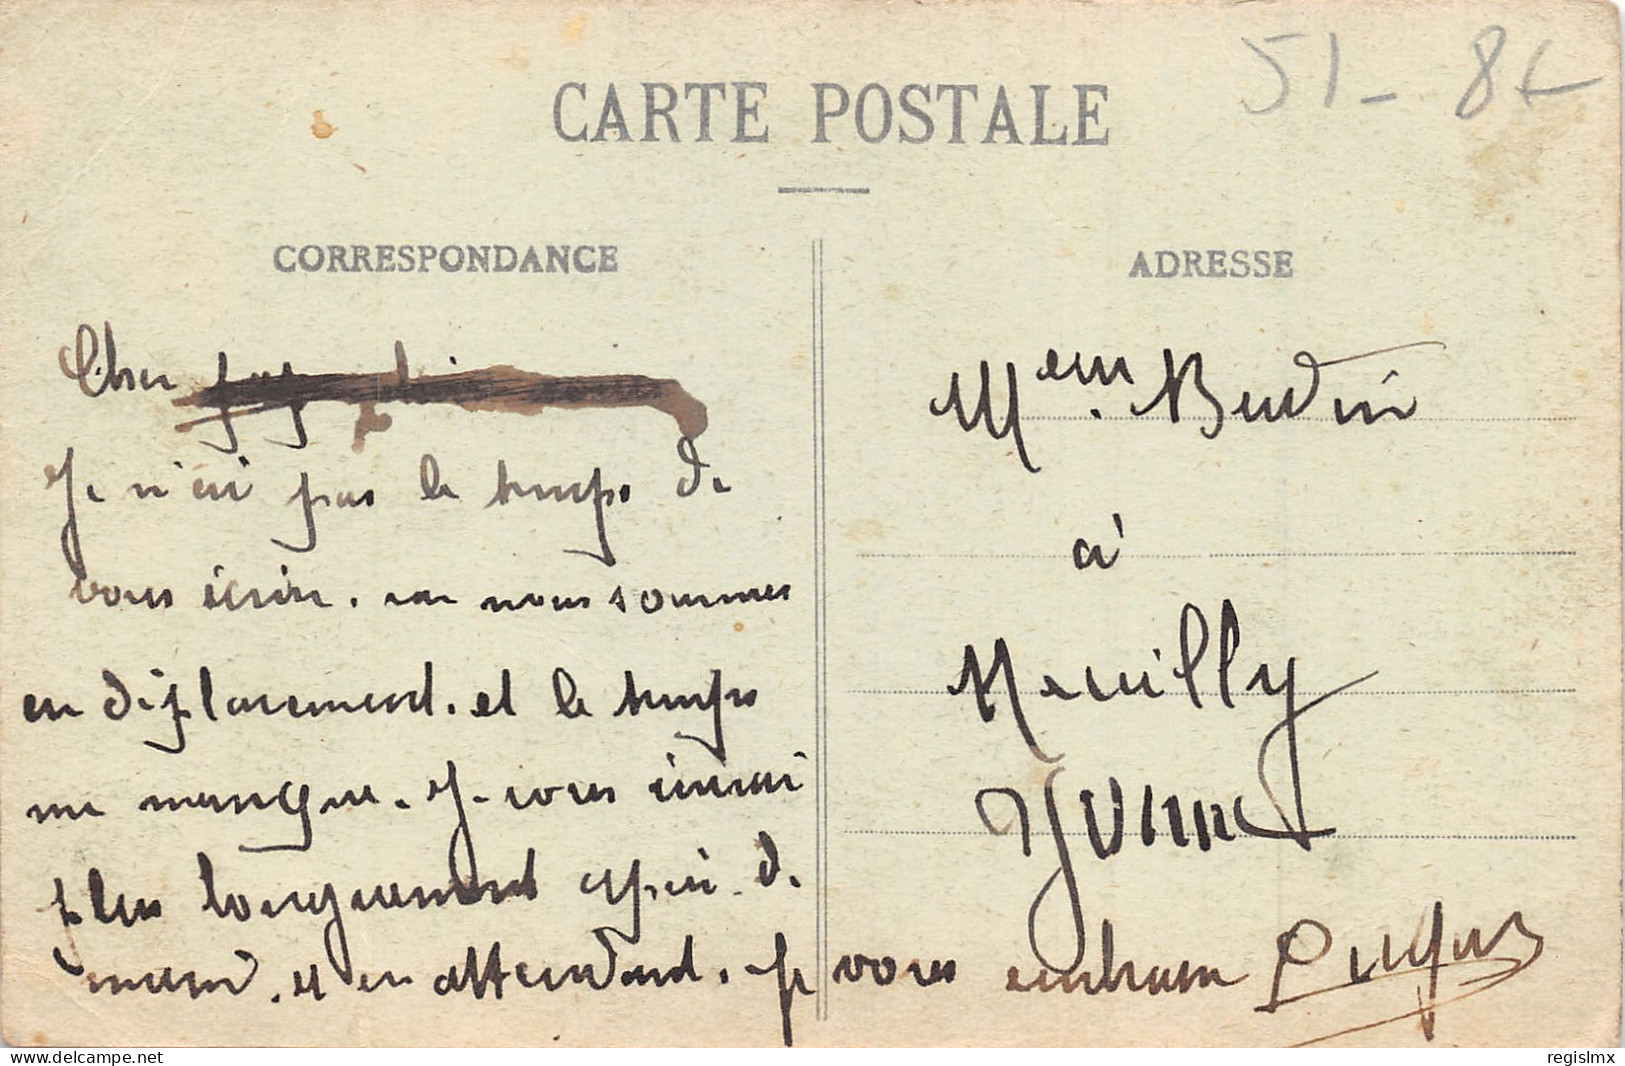 51 - 8
CARTE POSTALE
CORRESPONDANCE
ADRESSE
Cher
Je n'ai pas le temps de
vous écrire. car nous sommes
en déplacement. et le temps
me manque. Je vous écrirai
plus longuement après de
main. et en attendant. Je vous embrasse
Mem. Budin
à
Neuilly
Yonne
www.delcampe.net
regislmx